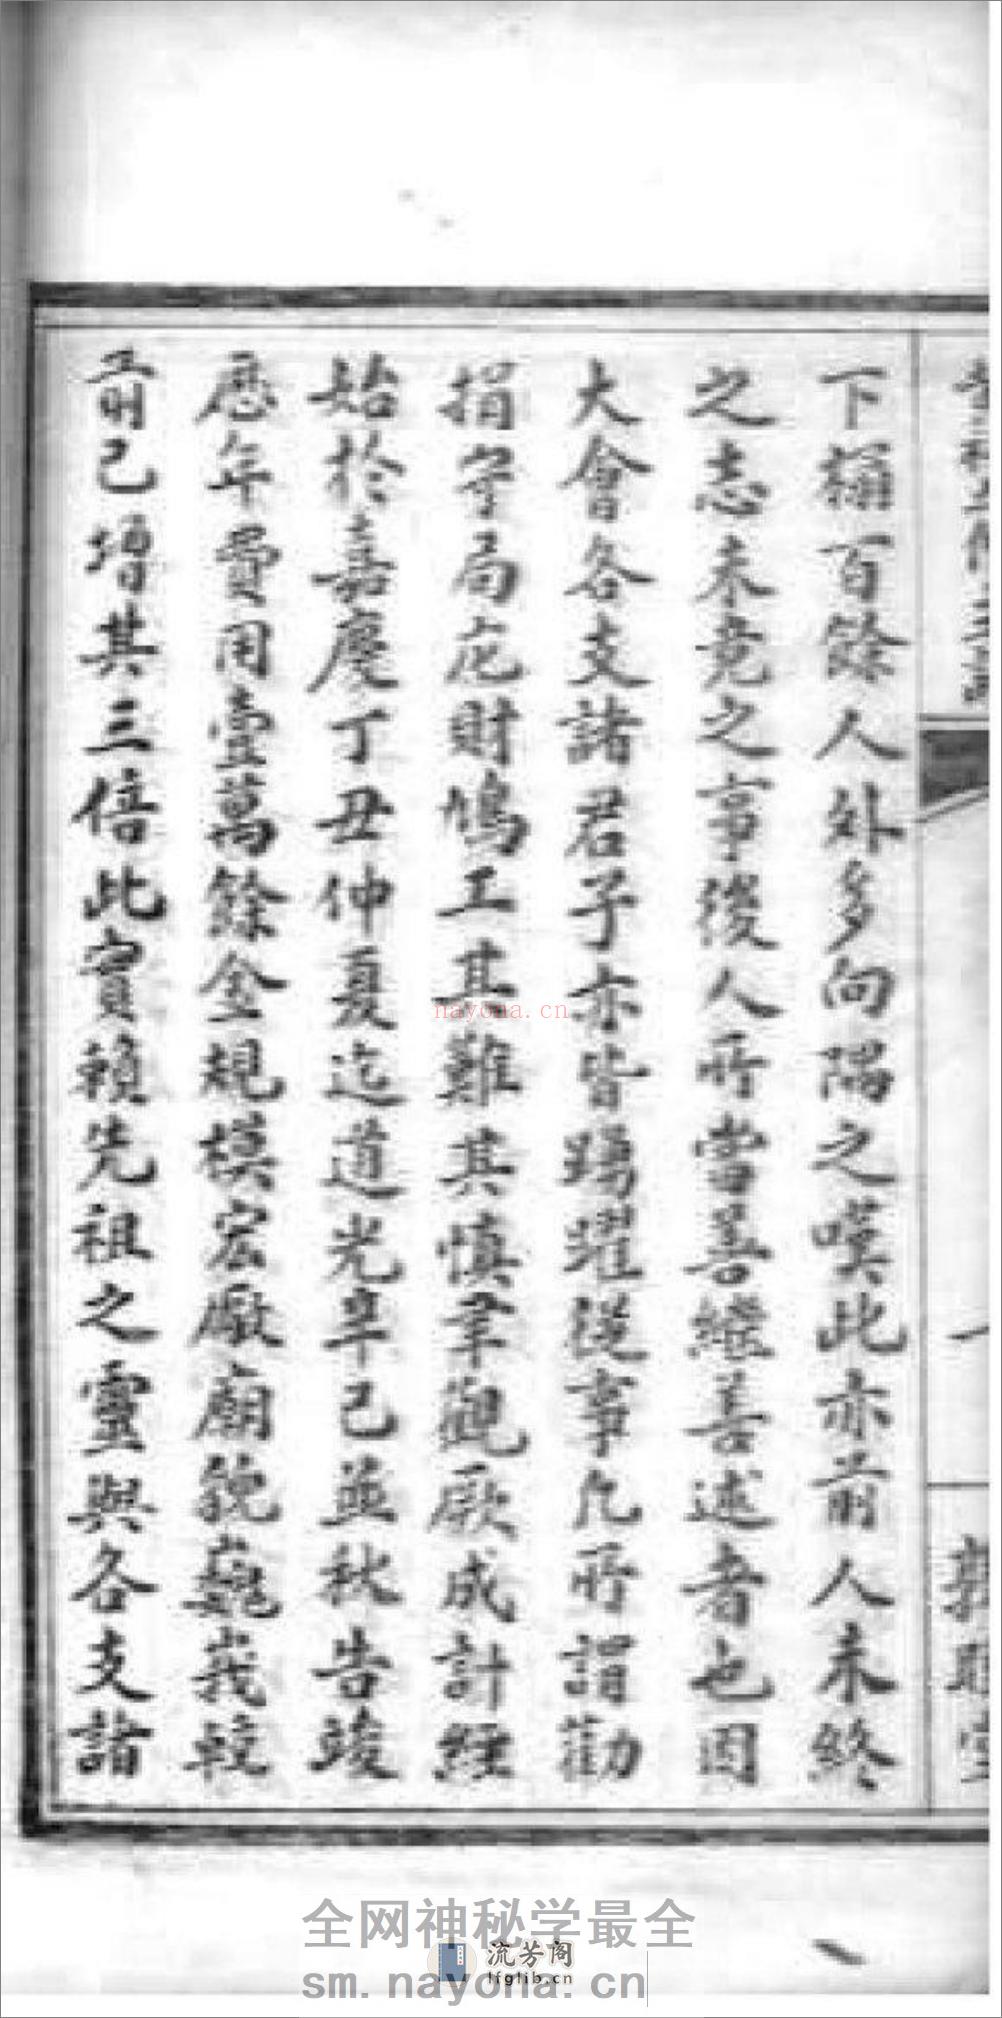 下榻百餘人外多向隅之嘆此亦前人未終
之志未竟之事後人所當善繼善述者也因
大會各支諸君子亦皆踴躍從事凡所謂勸
捐守局庀財鳩工其難其慎聿觀厥成計經
始於嘉慶丁丑仲夏迄道光辛巳孟秋告竣
歷年費用壹萬餘金規模宏厰廟貌巍峩較
前已增其三倍此實賴先祖之靈與各支諸
nayona.cn
全网神秘学最全
流芳阁
lfglib.cn
sm.nayona.cn